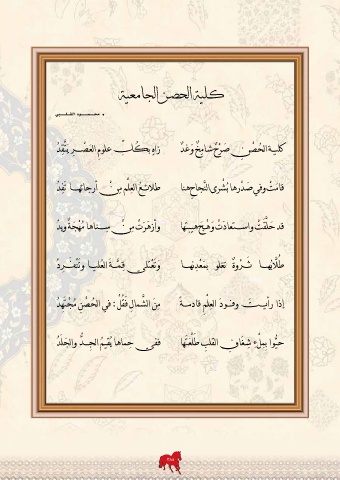 كلية الحصن الجامعية
د. محمود الشلبي
كلية الحُصْنِ صَرْحٌ شامخٌ وَغَدٌ زاهٍ بكُلِّ علومِ العَصْرِ يتَّقِدُ
قامَتْ وفي صَدْرِها بُشْرى النَّجاحِ هنا طلائعُ العِلْمِ مِنْ أرجائِها تَفِدُ
قد حلَّقَتْ واستعادَتْ وَهْجَ هيبتِها وأزهَرَتْ مِنْ سِناها مُهْجَةٌ ويدُ
طُلّابُها ثَرْوَةٌ تغلو بمَعْدِنِها وتَعْتلي قِمَّةَ العَليا وتَنْفَرِدُ
إذا رأيتَ وفودَ العِلمِ قادمةً مِنَ الشَّمالِ فَقُلْ: في الحُصْنِ مُجْتَهِدُ
حيُّوا بمِلْءِ شِغافِ القلبِ طَلْعَتَها ففي حِماها يُقيمُ الجِدُّ والجَلَدُ